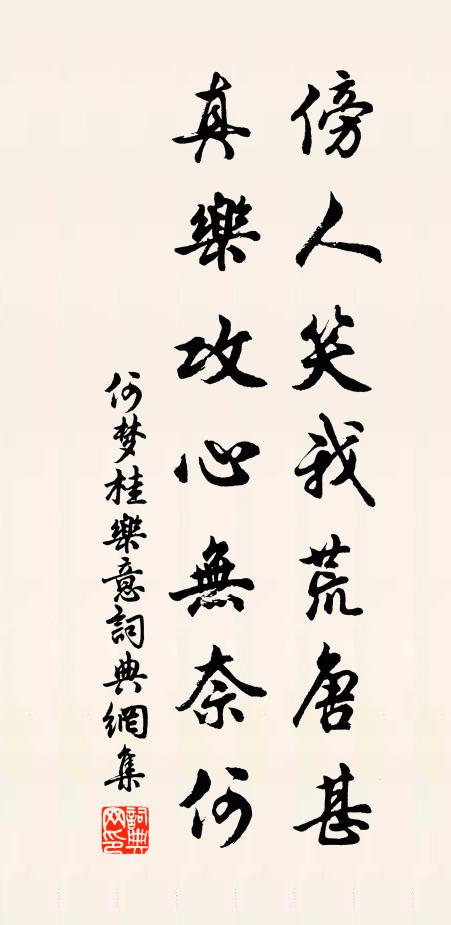 傍人笑我荒唐甚
真樂攻心無奈何
何梦桂樂意詞典網集
詞典網印